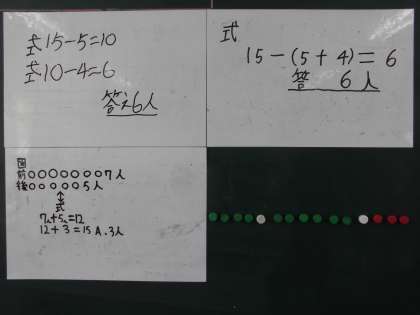 式15-5=10
式10-4=6
答え6人
式
15-(5+4)=6
答 6人
図
前○○○○○○○7人
後○○○○○5人
↑
式
7人+5人=12
12+3=15 A.3人